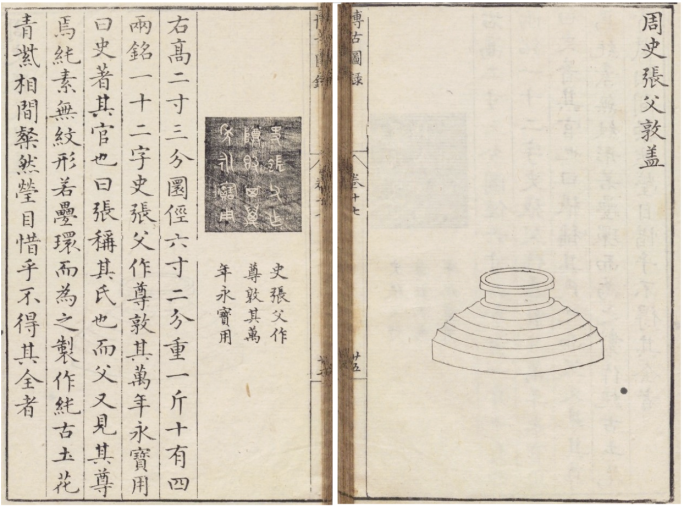 周史張父敦盖
博古圖録
卷十七
廿五
史張父作
尊敦其萬
年永寶用
右高二寸三分圜徑六寸二分重一斤十有四
兩銘一十二字史張父作尊敦其萬年永寶用
曰史著其官也曰張稱其氏也而父又見其尊
焉純素無紋形若疊環而為之製作純古土花
青紫相間粲然瑩目惜乎不得其全者